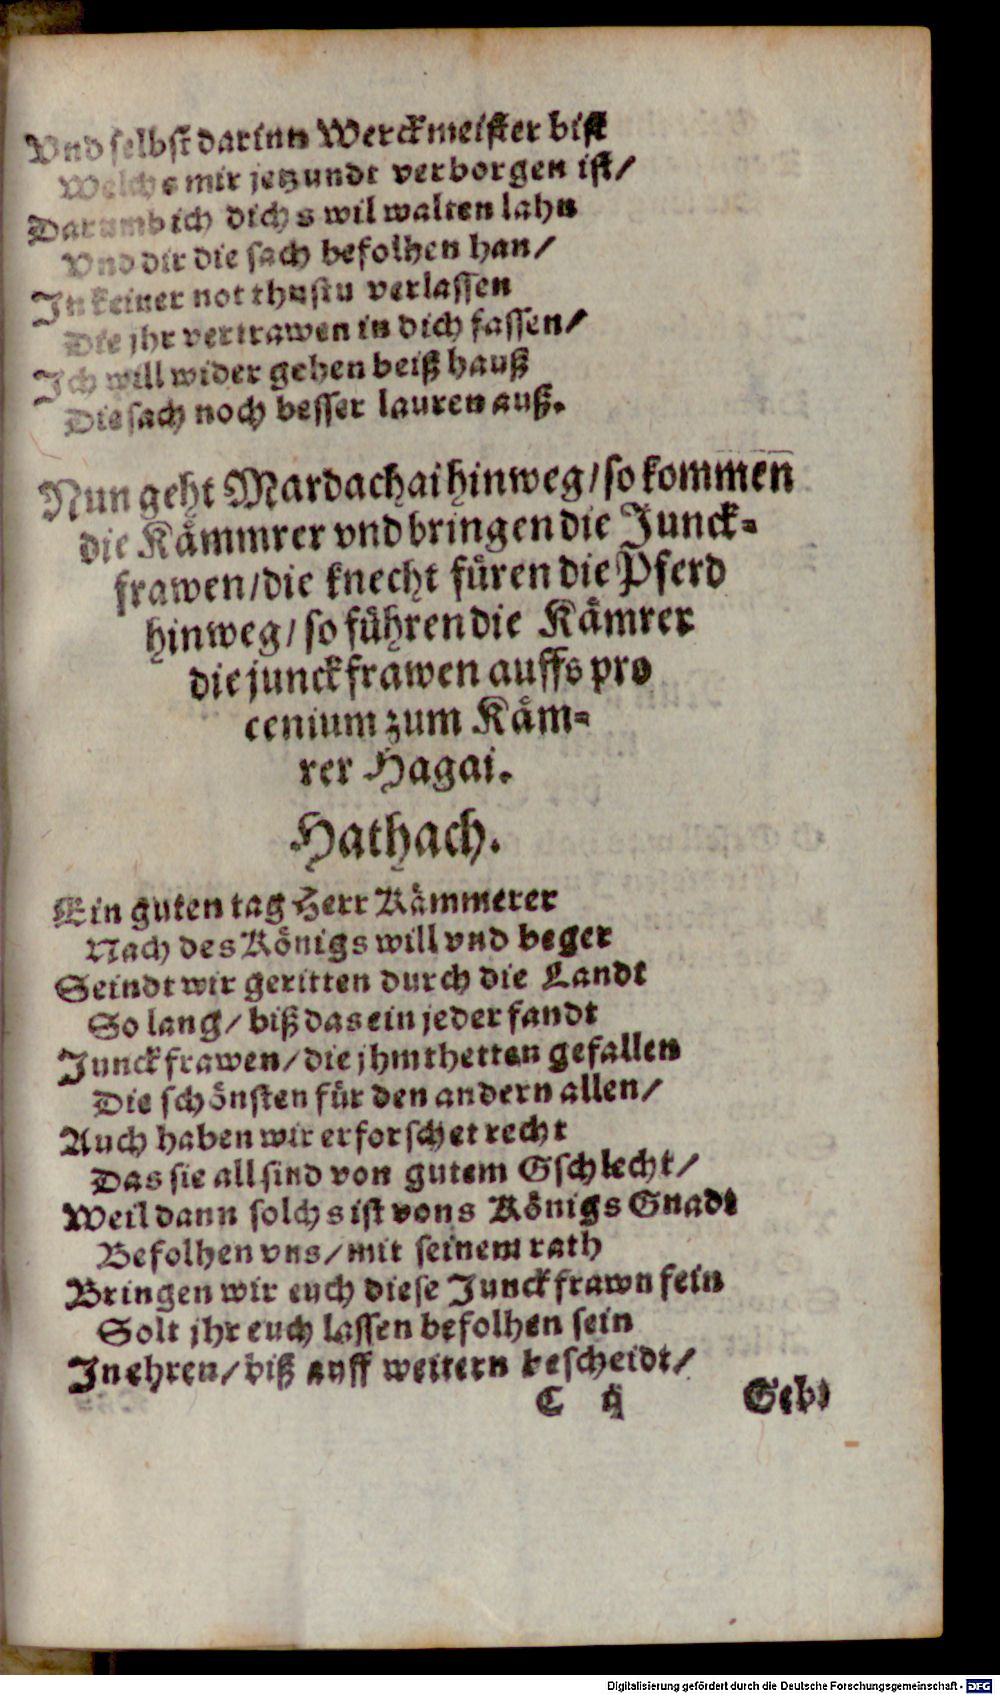 Vnd selbst darinn Werckmeister bist
Welchs mir jetzundt verborgen ist/
Darumb ich dichs wil walten lahn
Vnd dir die sach befolhen han/
In keiner not thustu verlassen
Die jhr vertrawen in dich fassen/
Ich will wider gehen beiß hauß
Die sach noch besser lauren auß.
Nun geht Mardachai hinweg/ so kommen
die Kåmmrer vnd bringen die Junck-
frawen/ die knecht füren die Pferd
hinweg/ so führen die Kåmrer
die junckfrawen auffs pro
cenium zum Kåm-
rer Hagai.
Hathach.
Ein guten tag Herr Kåmmerer
Nach des Königs will vnd beger
Seindt wir geritten durch die Landt
So lang/ biß das ein jeder fandt
Junckfrawen/ die jhm thetten gefallen
Die schönsten für den andern allen/
Auch haben wir erforschet recht
Das sie all sind von gutem Gschlecht/
Weil dann solchs ist vons Königs Gnadt
Befolhen vns/ mit seinem rath
Bringen wir euch diese Junckfrawn fein
Solt jhr euch lassen befolhen sein
In ehren/ biß auff weitern bescheidt/
C ij Geb-
Digitalisierung gefördert durch die Deutsche Forschungsgemeinschaft - DFG